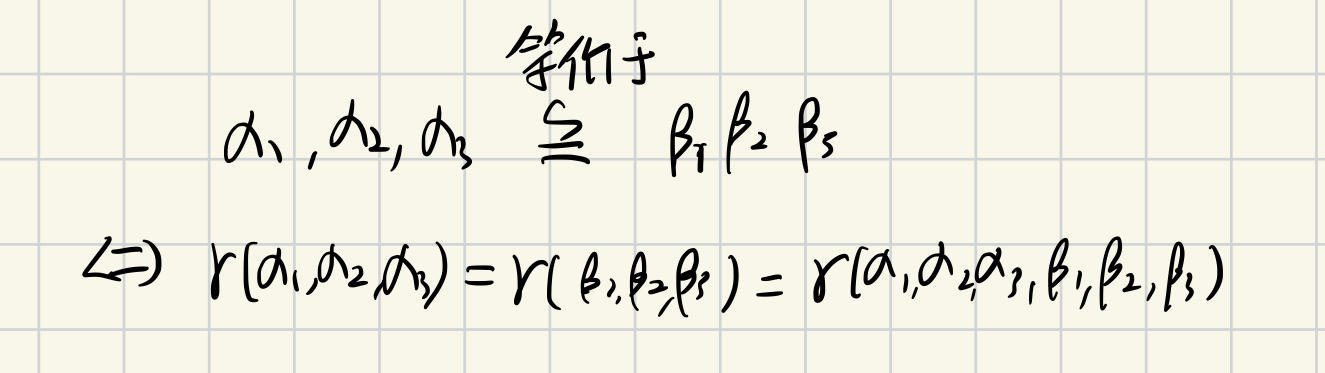 等价于
α₁, α₂, α₃ ≅ β₁ β₂ β₃
<=> r(α₁,α₂,α₃) = r(β₁,β₂,β₃) = r(α₁,α₂,α₃,β₁,β₂,β₃)